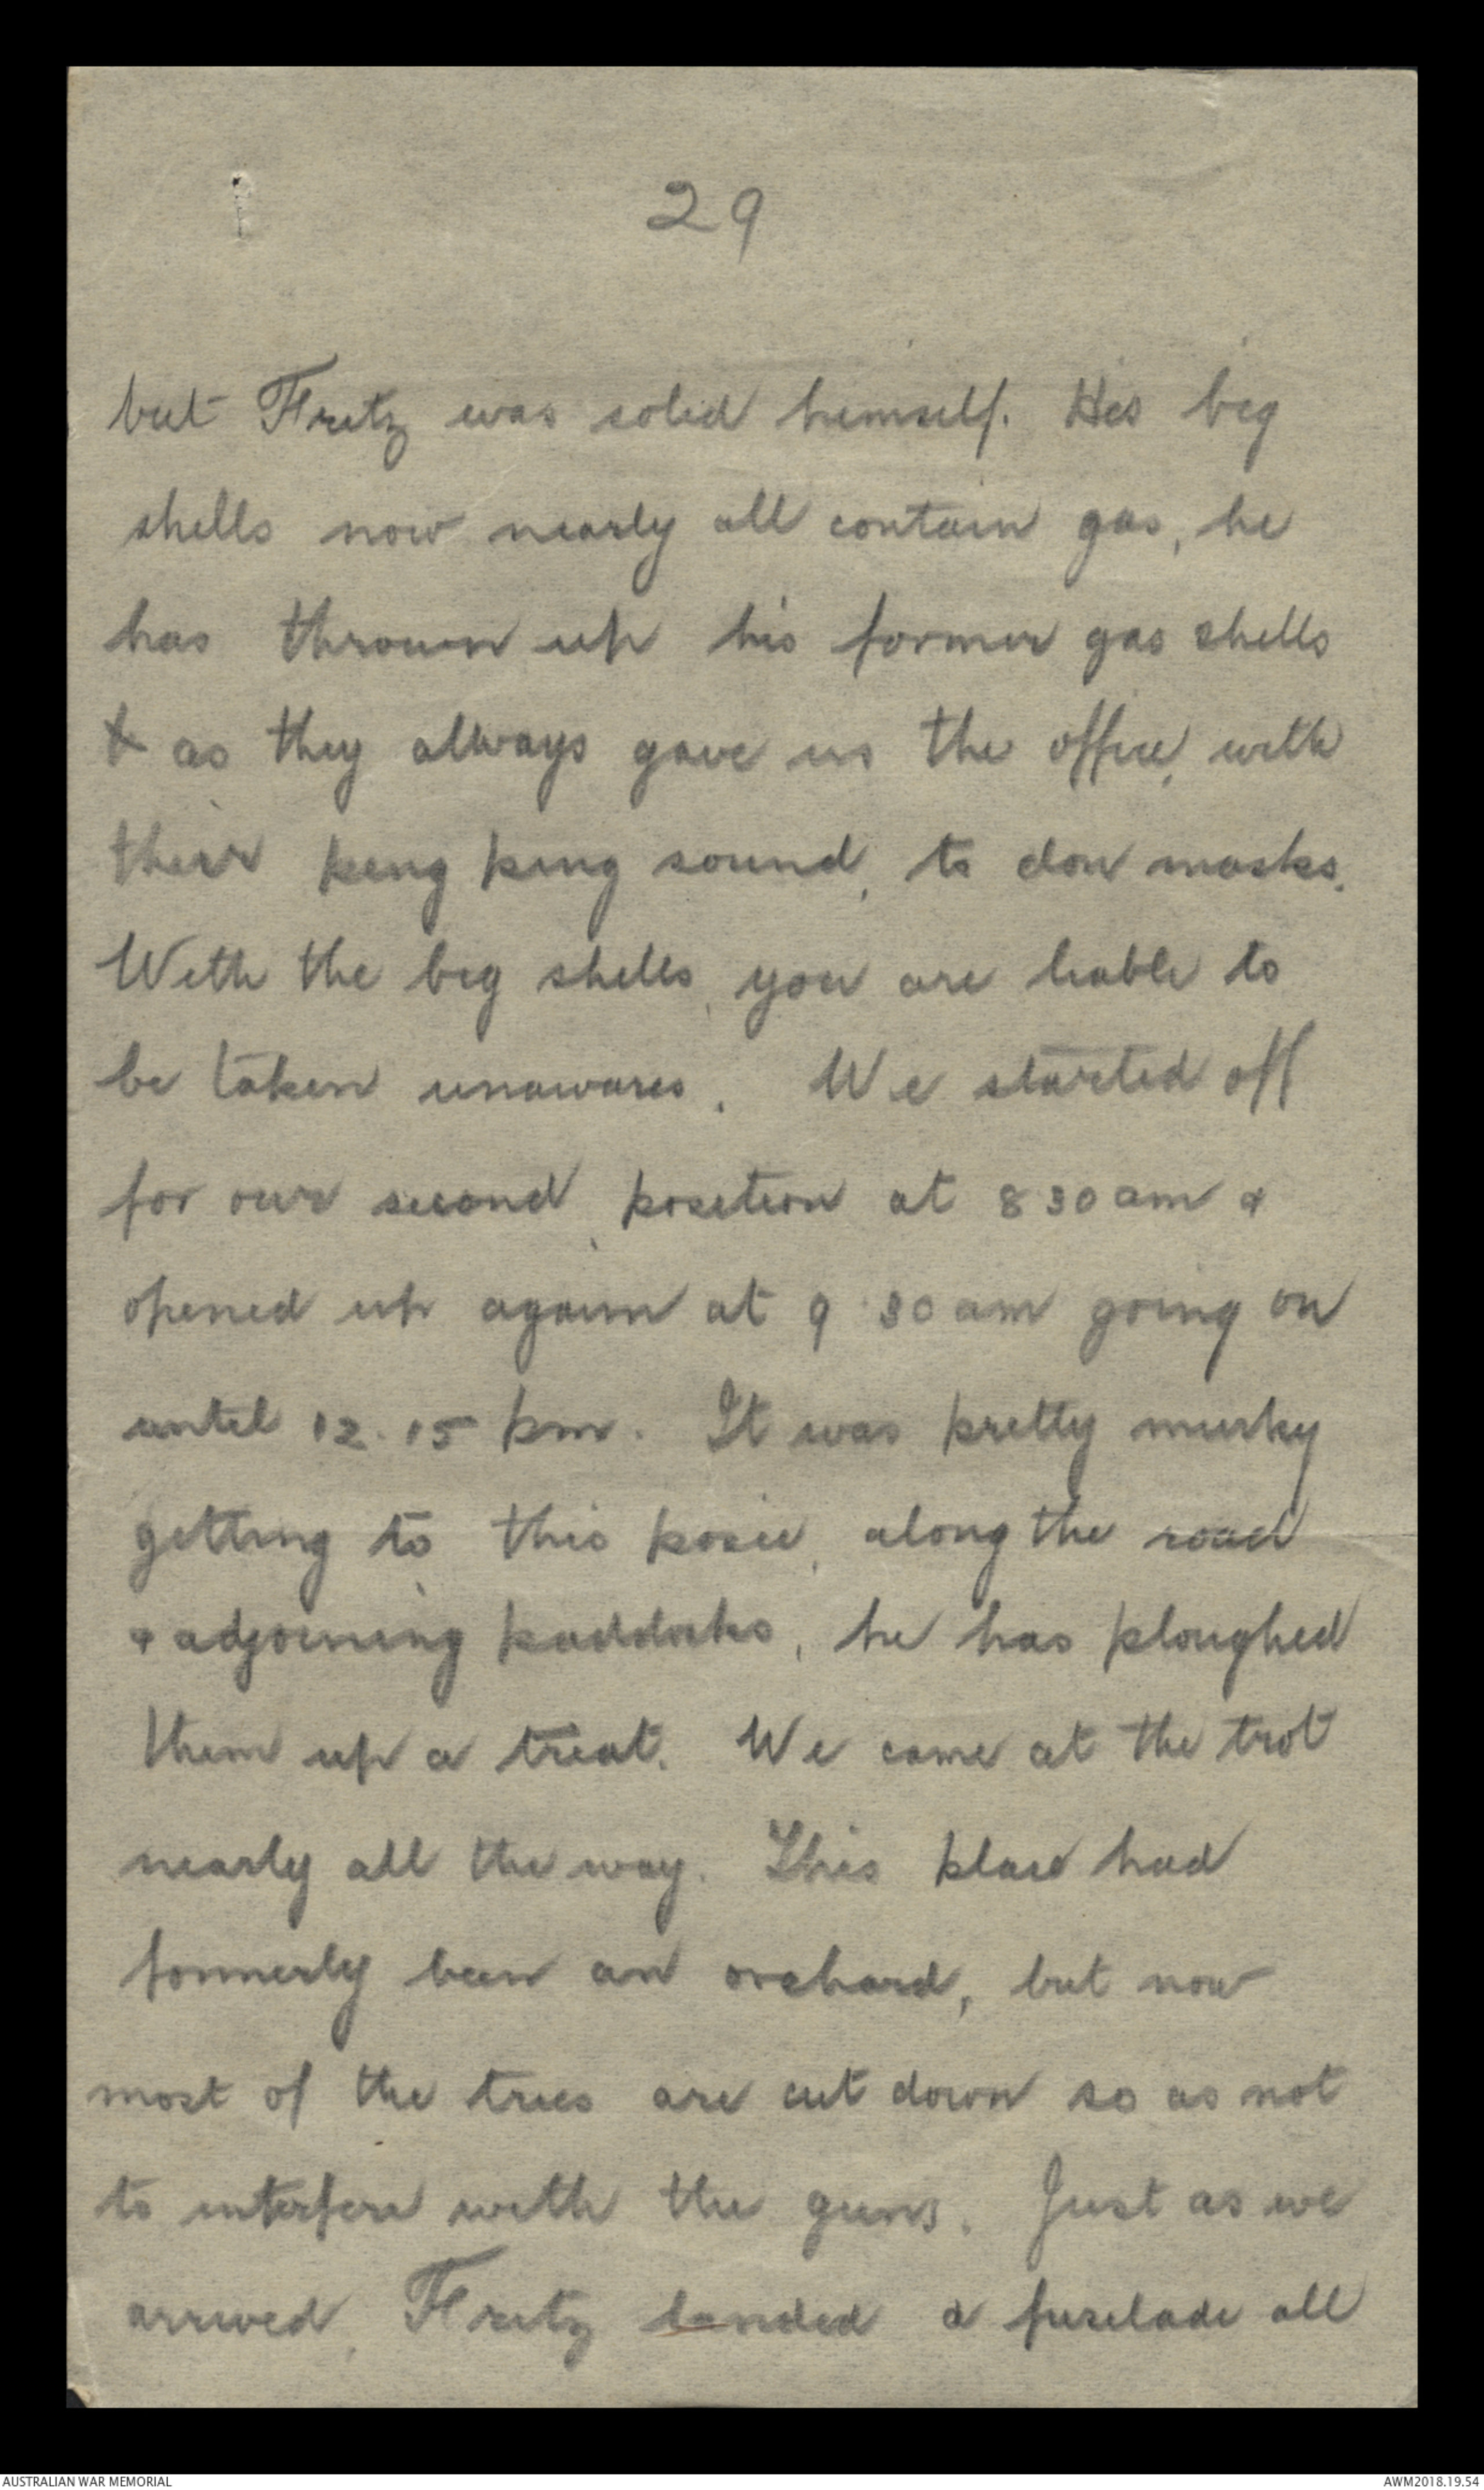 29
but Fritz was solid himself. His big
shells now nearly all contain gas, he
has thrown up his former gas shells
& as they always gave us the office, with
their ping ping sound, to don masks.
With the big shells, you are liable to
be taken unawares. We started off
for our second position at 8 30 am &
opened up again at 9 30 am going on
until 12.15 pm. It was pretty murky
getting to this posie, along the road
& adjoining paddocks, he has ploughed
them up a treat. We came at the trot
nearly all the way. This place had
formerly been an orchard, but now
most of the trees are cut down so as not
to interfere with the guns. Just as we
arrived, Fritz landed a fusilade all
AUSTRALIAN WAR MEMORIAL
AWM2018.19.54